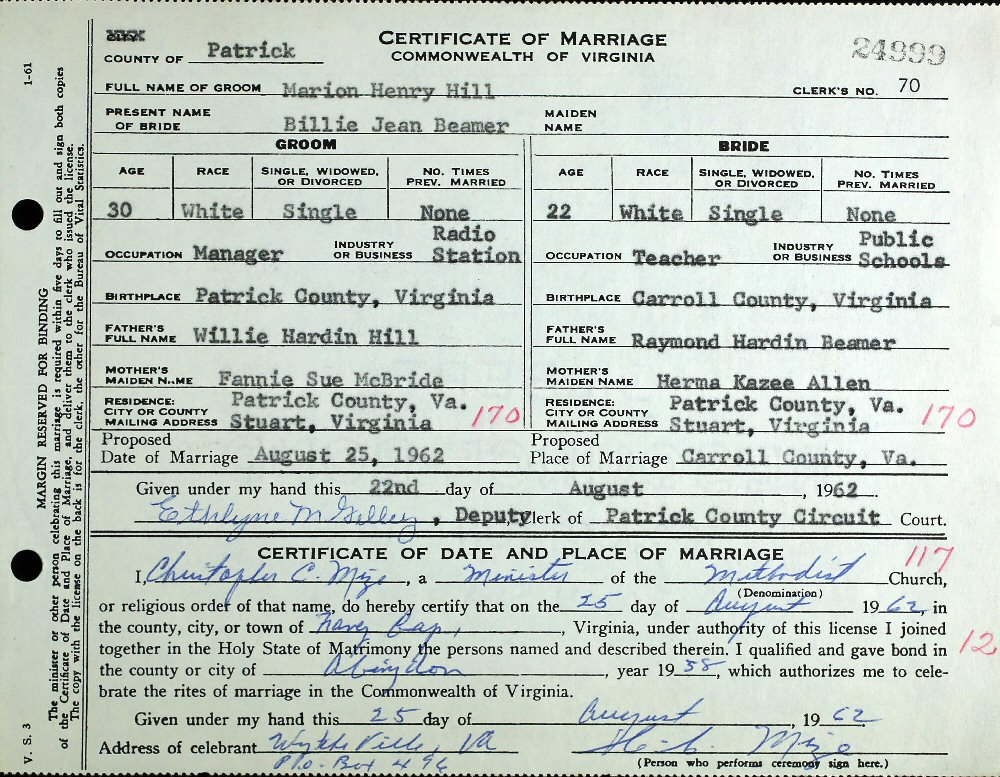 CERTIFICATE OF MARRIAGE
COMMONWEALTH OF VIRGINIA
24999
COUNTY OF Patrick
FULL NAME OF GROOM Marion Henry Hill CLERK'S NO. 70
PRESENT NAME OF BRIDE Billie Jean Beamer MAIDEN NAME
GROOM BRIDE
AGE RACE SINGLE, WIDOWED, OR DIVORCED NO. TIMES PREV. MARRIED AGE RACE SINGLE, WIDOWED, OR DIVORCED NO. TIMES PREV. MARRIED
30 White Single None 22 White Single None
OCCUPATION Manager INDUSTRY OR BUSINESS Radio Station OCCUPATION Teacher INDUSTRY OR BUSINESS Public Schools
BIRTHPLACE Patrick County, Virginia BIRTHPLACE Carroll County, Virginia
FATHER'S FULL NAME Willie Hardin Hill FATHER'S FULL NAME Raymond Hardin Beamer
MOTHER'S MAIDEN NAME Fannie Sue McBride MOTHER'S MAIDEN NAME Herma Kazee Allen
RESIDENCE: CITY OR COUNTY Patrick County, Va. RESIDENCE: CITY OR COUNTY Patrick County, Va.
MAILING ADDRESS Stuart, Virginia 170 MAILING ADDRESS Stuart, Virginia 170
Proposed Date of Marriage August 25, 1962 Proposed Place of Marriage Carroll County, Va.
Given under my hand this 22nd day of August, 1962.
Ethlyne M Gilley, Deputy Clerk of Patrick County Circuit Court.
CERTIFICATE OF DATE AND PLACE OF MARRIAGE 117
I, Christopher C. Mize, a Minister of the Methodist Church,
(Denomination)
or religious order of that name, do hereby certify that on the 25 day of August 1962, in
the county, city, or town of Gap, Virginia, under authority of this license I joined
together in the Holy State of Matrimony the persons named and described therein. I qualified and gave bond in 12
the county or city of Abingdon, year 1958, which authorizes me to cele-
brate the rites of marriage in the Commonwealth of Virginia.
Given under my hand this 25 day of August, 1962
Address of celebrant Wytheville, Va Mize
P.O. Box 496 (Person who performs ceremony sign here.)
1-61
MARGIN RESERVED FOR BINDING
The minister or other person celebrating this marriage is required within five days to fill out and sign both copies
of the Certificate of Date and Place of Marriage, and deliver them to the clerk who issued the license.
The copy with the license on the back is for the clerk, the other for the Bureau of Vital Statistics.
V. S. 3